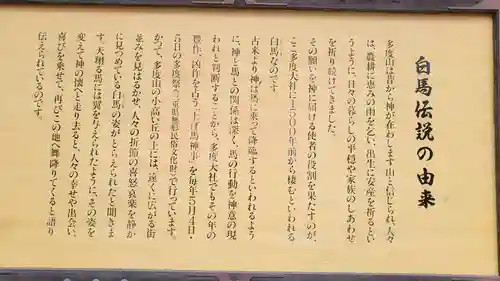 白馬伝説の由来
多度山は昔から神が在わします山と信じられ、人々
は、農耕に恵みの雨を乞い、出生に安産を祈るとい
うように、日々の暮らしの平穏や家族のしあわせ
を祈り続けてきました。
その願いを神に届ける使者の役割を果たすのが、
ここ多度大社に1500年前から棲むといわれる
白馬なのです。
古来より神は馬に乗って降臨するといわれるよう
に、神と馬との関係は深く、馬の行動を神意の現
われと判断することから、多度大社でもその年の
豊作、凶作を占う「上げ馬神事」を毎年5月4日・
5日の多度祭(三重県無形民俗文化財)で行っています。
かつて、多度山の小高い丘の上には、遠くに広がる街
並みを見はるかせ、人々の折節の喜怒哀楽を静か
に見つめている白馬の姿がとらえられたと聞きま
す。天翔る馬には翼を与えられたように、その姿を
変えて神の懐へと走り去ると、人々の幸せや出会い、
喜びを乗せて、再びこの地へ舞降りてくると語り
伝えられているのです。